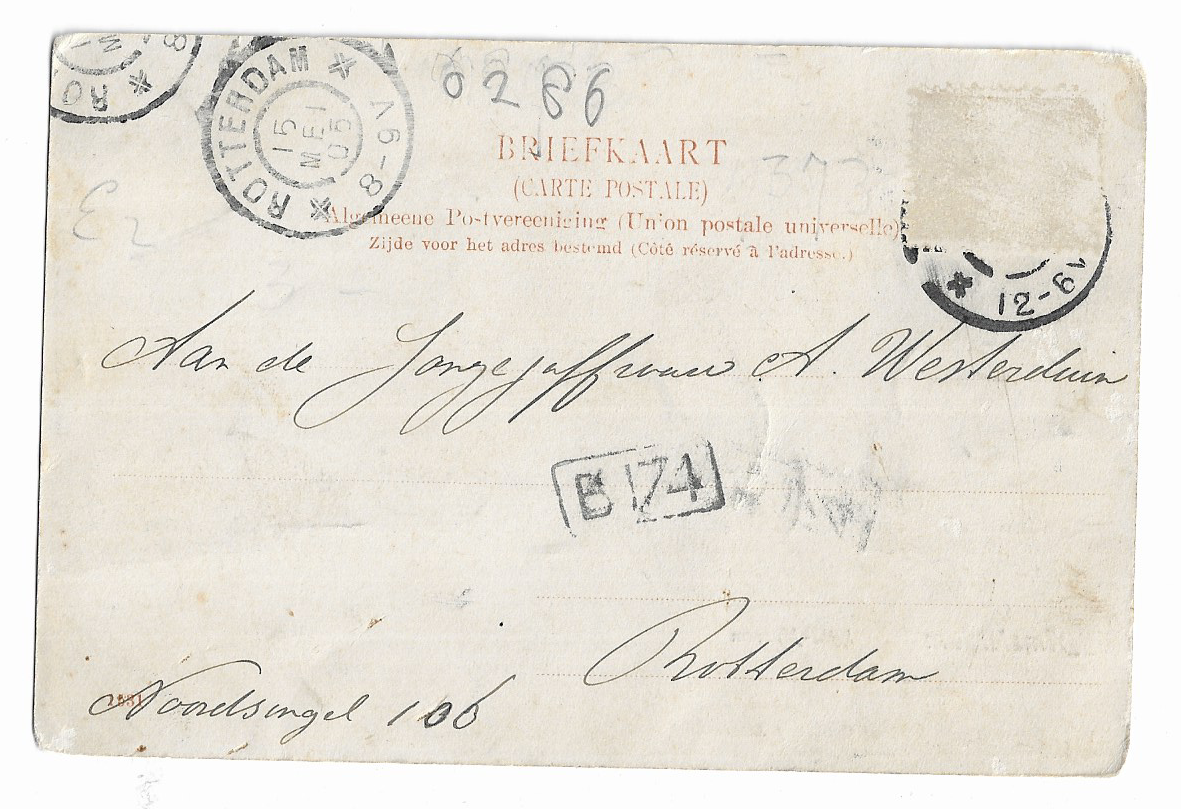 RO
ROTTERDAM
15
MEI
05
6-8V
0286
BRIEFKAART
(CARTE POSTALE)
Algemeene Postvereeniging (Union postale universelle)
Zijde voor het adres bestemd (Côté réservé à l'adresse.)
12-6V
Aan de Jongejuffrouw A. Westerduin
B 74
Rotterdam
Noordsingel 106